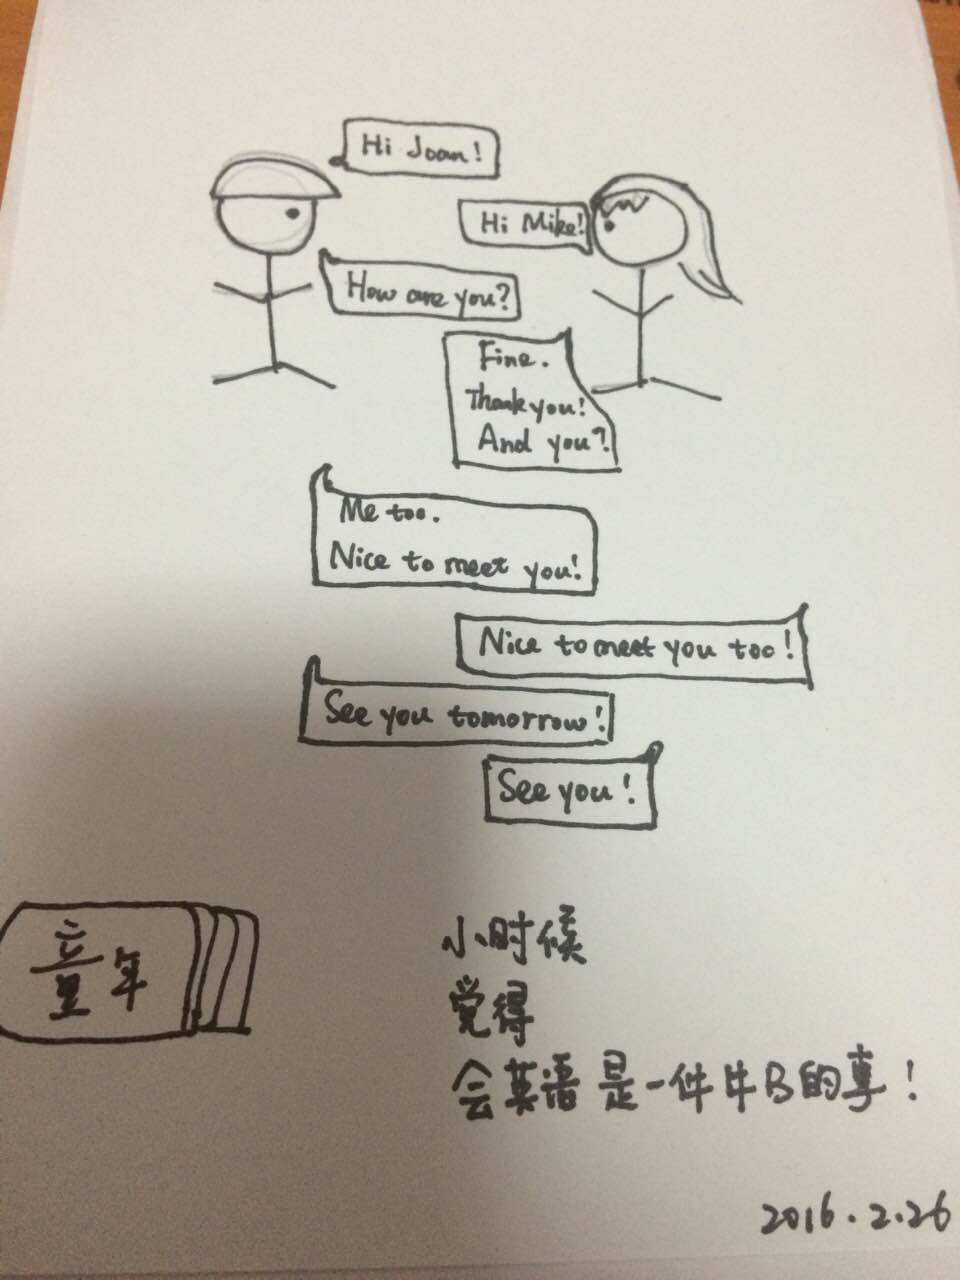 Hi Joan!
Hi Mike!
How are you?
Fine.
Thank you!
And you?
Me too.
Nice to meet you!
Nice to meet you too!
See you tomorrow!
See you!
童年
小时候
觉得
会英语是一件牛B的事!
2016.2.26